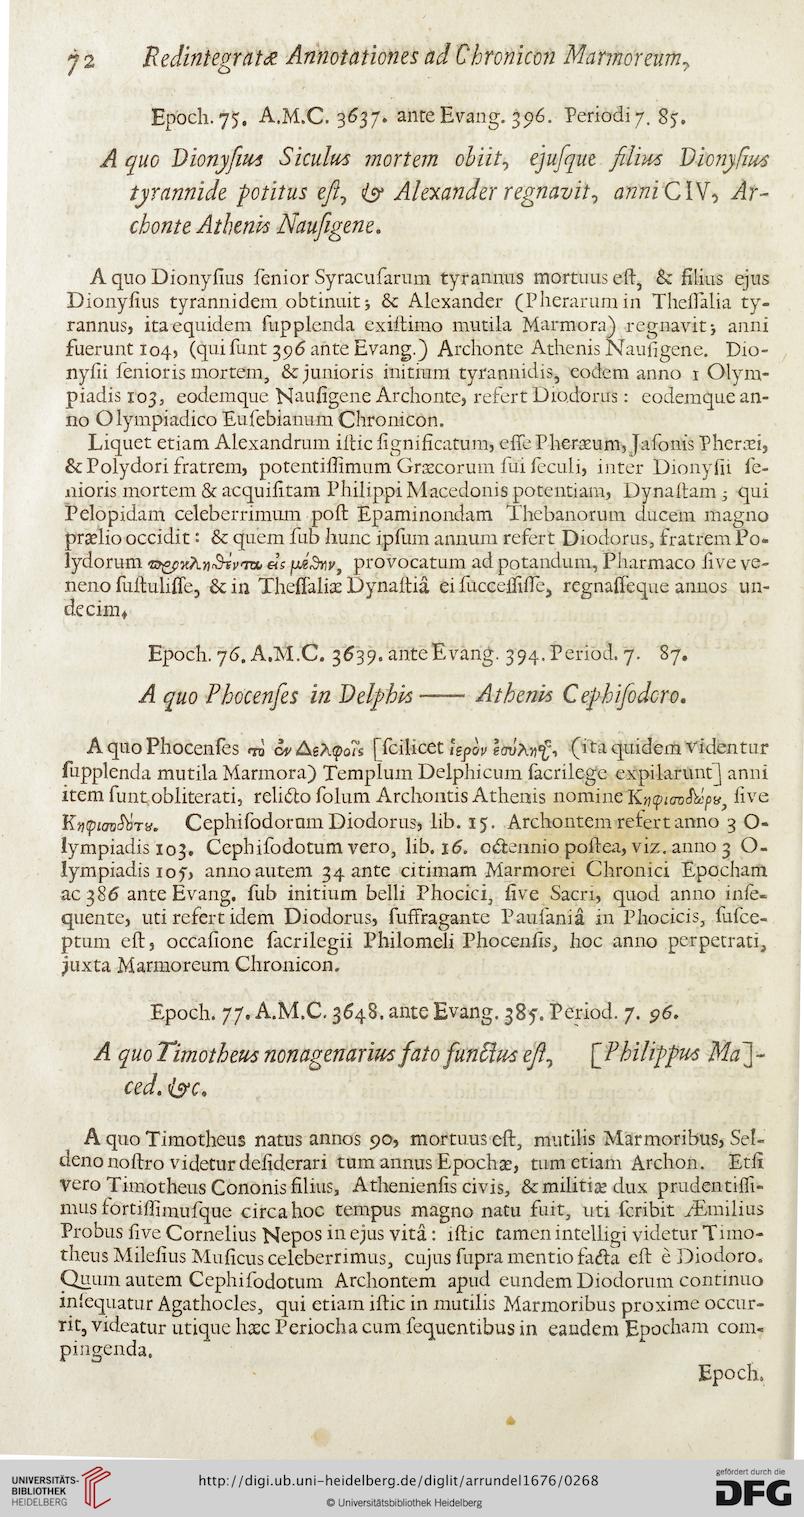 72 Redintegratæ Annotationes ad Chronicon Marmoreum,
Epoch. 75. A.M.C. 3637. ante Evang. 396. Periodi 7. 85.
A quo Dionyſius Siculus mortem obiit, ejuſque filius Dionyſius
tyrannide potitus eſt, & Alexander regnavit, anni CIV, Ar-
chonte Athenis Nauſigene.
A quo Dionyſius ſenior Syracuſarum tyrannus mortuus eſt, & filius ejus
Dionyſius tyrannidem obtinuit; & Alexander (Pherarum in Theſſalia ty-
rannus, ita equidem ſupplenda exiſtimo mutila Marmora) regnavit; anni
fuerunt 104, (qui ſunt 396 ante Evang.) Archonte Athenis Nauſigene. Dio-
nyſii ſenioris mortem, & junioris initium tyrannidis, eodem anno 1 Olym-
piadis 103, eodemque Nauſigene Archonte, refert Diodorus: eodemque an-
no Olympiadico Euſebianum Chronicon.
Liquet etiam Alexandrum iſtic ſignificatum, eſſe Pheræum, Jaſonis Pheræi,
& Polydori fratrem, potentiſſimum Græcorum ſui ſeculi, inter Dionyſii ſe-
nioris mortem & acquiſitam Philippi Macedonis potentiam, Dynaſtam; qui
Pelopidam celeberrimum poſt Epaminondam Thebanorum ducem magno
prælio occidit: & quem ſub hunc ipſum annum refert Diodorus, fratrem Po-
lydorum προκληθέντα εἰς μέθην, provocatum ad potandum, Pharmaco ſive ve-
neno ſuſtuliſſe, & in Theſſaliæ Dynaſtiâ ei ſucceſſiſſe, regnaſſeque annos un-
decim.
Epoch. 76. A.M.C. 3639. ante Evang. 394. Period. 7. 87.
A quo Phocenſes in Delphis —— Athenis Cephiſodoro.
A quo Phocenſes τὸ ἐν Δελφοῖς [ſcilicet ἱερὸν ἐσύλησαν, (ita quidem videntur
ſupplenda mutila Marmora) Templum Delphicum ſacrilege expilarunt] anni
item ſunt obliterati, relicto ſolum Archontis Athenis nomine Κηφισοδώρου, ſive
Κηφισοδότου. Cephiſodorum Diodorus, lib. 15. Archontem refert anno 3 O-
lympiadis 103. Cephiſodotum vero, lib. 16. octennio poſtea, viz. anno 3 O-
lympiadis 105, anno autem 34 ante citimam Marmorei Chronici Epocham
ac 386 ante Evang. ſub initium belli Phocici, ſive Sacri, quod anno inſe-
quente, uti refert idem Diodorus, ſuffragante Pauſaniâ in Phocicis, ſuſce-
ptum eſt, occaſione ſacrilegii Philomeli Phocenſis, hoc anno perpetrati,
juxta Marmoreum Chronicon.
Epoch. 77. A.M.C. 3648. ante Evang. 385. Period. 7. 96.
A quo Timotheus nonagenarius fato functus eſt, [Philippus Ma]-
ced. &c.
A quo Timotheus natus annos 90, mortuus eſt, mutilis Marmoribus, Sel-
deno noſtro videtur deſiderari tum annus Epochæ, tum etiam Archon. Etſi
vero Timotheus Cononis filius, Athenienſis civis, & militiæ dux prudentiſſi-
mus fortiſſimuſque circa hoc tempus magno natu fuit, uti ſcribit Æmilius
Probus ſive Cornelius Nepos in ejus vitâ: iſtic tamen intelligi videtur Timo-
theus Mileſius Muſicus celeberrimus, cujus ſupra mentio facta eſt è Diodoro.
Quum autem Cephiſodotum Archontem apud eundem Diodorum continuo
inſequatur Agathocles, qui etiam iſtic in mutilis Marmoribus proxime occur-
rit, videatur utique hæc Periocha cum ſequentibus in eandem Epocham com-
pingenda.
Epoch.
UNIVERSITÄTS-
BIBLIOTHEK
HEIDELBERG
http://digi.ub.uni-heidelberg.de/diglit/arrundel1676/0268
© Universitätsbibliothek Heidelberg
gefördert durch die
DFG